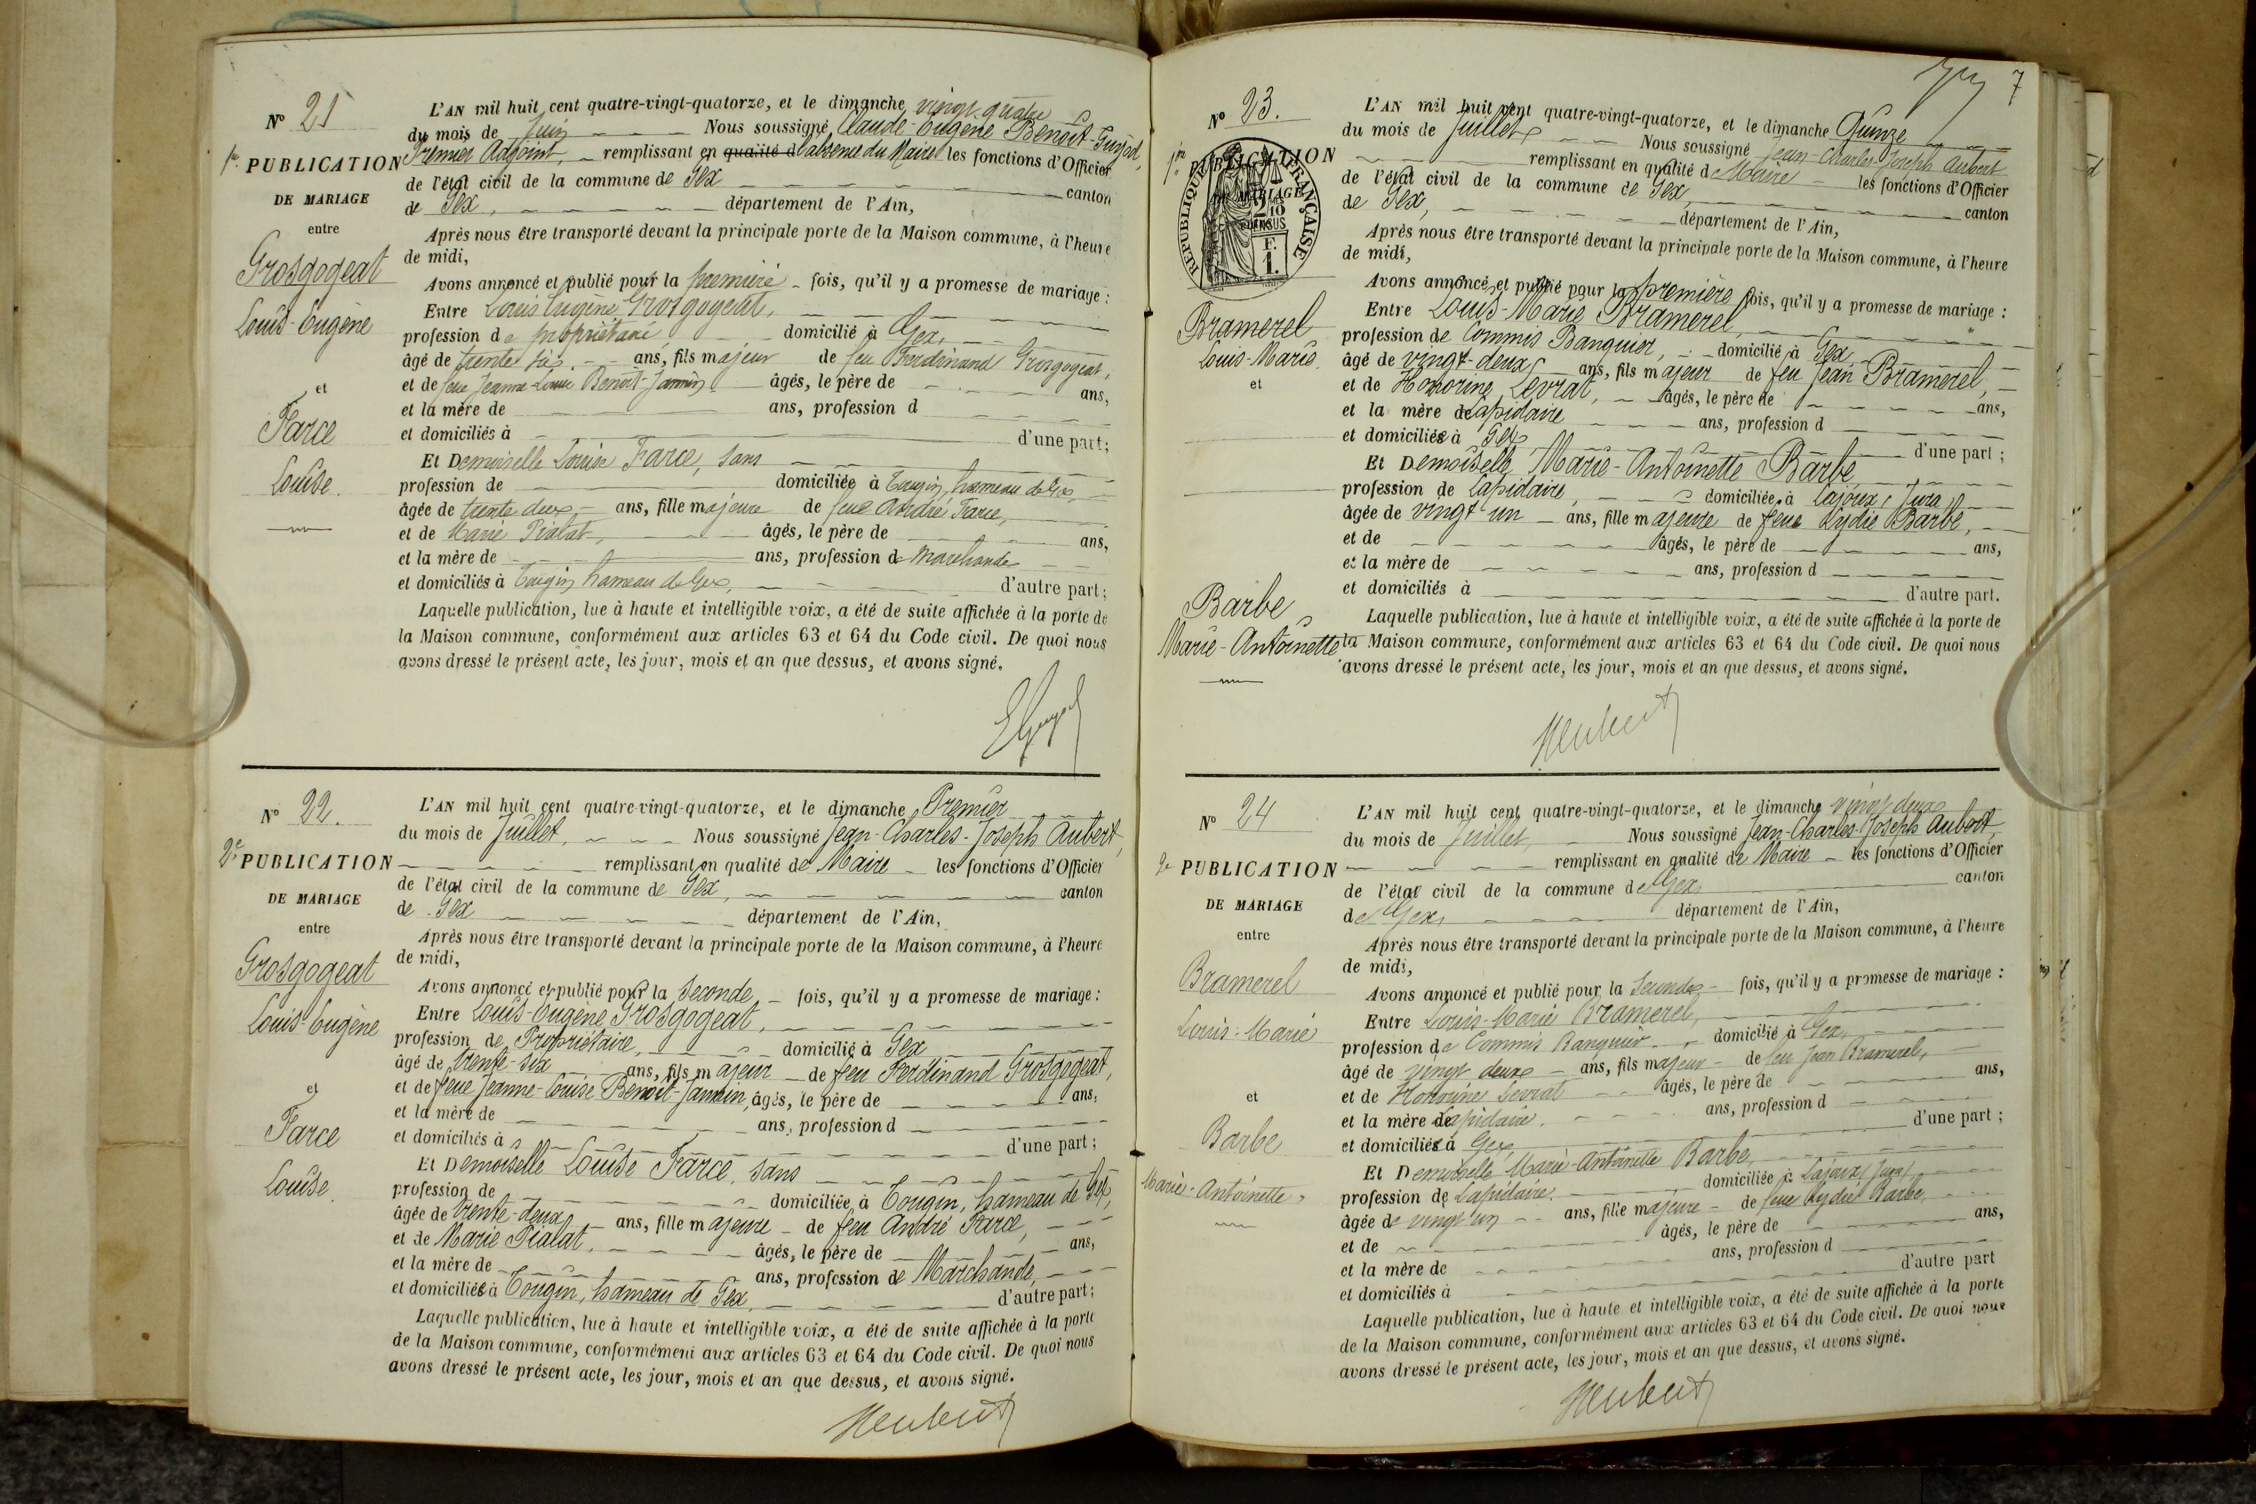 Nº 21
1re PUBLICATION
DE MARIAGE
entre
Grosgogeat
Louis-Eugène
et
Farce
Louise.
L'AN mil huit cent quatre-vingt-quatorze, et le dimanche vingt-quatre
du mois de Juin Nous soussigné Claude-Eugène Benoit-Gugod,
Premier Adjoint, remplissant en qualité d l'absence du Maire les fonctions d'Officier
de l'état civil de la commune de Gex canton
de Gex, département de l'Ain,
Après nous être transporté devant la principale porte de la Maison commune, à l'heure
de midi,
Avons annoncé et publié pour la première fois, qu'il y a promesse de mariage :
Entre Louis Eugène Grosgogeat,
profession de propriétaire domicilié à Gex,
âgé de trente six ans, fils majeur de feu Ferdinand Grosgogeat,
et de feue Jeanne-Louise Benoît-Jannin âgés, le père de ans,
et la mère de ans, profession d
et domiciliés à d'une part;
Et Demoiselle Louise Farce, sans
profession de domiciliée à Tougin, hameau de Gex,
âgée de trente deux ans, fille majeure de feu André Farce,
et de Marie Pialat, âgés, le père de ans,
et la mère de ans, profession de Marchande
et domiciliés à Tougin hameau de Gex, d'autre part;
Laquelle publication, lue à haute et intelligible voix, a été de suite affichée à la porte de
la Maison commune, conformément aux articles 63 et 64 du Code civil. De quoi nous
avons dressé le présent acte, les jour, mois et an que dessus, et avons signé.
Nº 22.
2e PUBLICATION
DE MARIAGE
entre
Grosgogeat
Louis-Eugène
et
Farce
Louise.
L'AN mil huit cent quatre-vingt-quatorze, et le dimanche Premier
du mois de Juillet, Nous soussigné Jean-Charles-Joseph Aubert,
remplissant en qualité de Maire les fonctions d'Officier
de l'état civil de la commune de Gex, canton
de Gex département de l'Ain,
Après nous être transporté devant la principale porte de la Maison commune, à l'heure
de midi,
Avons annoncé et publié pour la Seconde fois, qu'il y a promesse de mariage :
Entre Louis-Eugène Grosgogeat,
profession de Propriétaire, domicilié à Gex
âgé de trente-six ans, fils majeur de feu Ferdinand Grosgogeat,
et de feue Jeanne-Louise Benoît-Jannin, âgés, le père de ans,
et la mère de ans, profession d
et domiciliés à d'une part ;
Et Demoiselle Louise Farce, sans
profession de domiciliée à Tougin, hameau de Gex,
âgée de trente-deux ans, fille majeure de feu André Farce,
et de Marie Pialat, âgés, le père de ans,
et la mère de ans, profession de Marchande,
et domiciliés à Tougin, hameau de Gex, d'autre part;
Laquelle publication, lue à haute et intelligible voix, a été de suite affichée à la porte
de la Maison commune, conformément aux articles 63 et 64 du Code civil. De quoi nous
avons dressé le présent acte, les jour, mois et an que dessus, et avons signé.
7
Nº 23.
1re PUBLICATION
RÉPUBLIQUE FRANÇAISE
Bramerel
Louis-Marie.
et
Barbe
Marie-Antoinette
L'AN mil huit cent quatre-vingt-quatorze, et le dimanche Quinze
du mois de Juillet Nous soussigné Jean-Charles-Joseph Aubert
remplissant en qualité d Maire les fonctions d'Officier
de l'état civil de la commune de Gex, canton
de Gex, département de l'Ain,
Après nous être transporté devant la principale porte de la Maison commune, à l'heure
de midi,
Avons annoncé et publié pour la première fois, qu'il y a promesse de mariage :
Entre Louis-Marie Bramerel
profession de Commis Banquier, domicilié à Gex
âgé de vingt-deux ans, fils majeur de feu Jean Bramerel,
et de Honorine Levrat, âgés, le père de ans,
et la mère de Lapidaire ans, profession d
et domiciliée à Gex d'une part ;
Et Demoiselle Marie-Antoinette Barbe
profession de Lapidaire, domiciliée à Lajoux, (Jura),
âgée de vingt un ans, fille majeure de feue Lydie Barbe,
et de âgés, le père de ans,
et la mère de ans, profession d
et domiciliés à d'autre part.
Laquelle publication, lue à haute et intelligible voix, a été de suite affichée à la porte de
la Maison commune, conformément aux articles 63 et 64 du Code civil. De quoi nous
avons dressé le présent acte, les jour, mois et an que dessus, et avons signé.
Nº 24
2e PUBLICATION
DE MARIAGE
entre
Bramerel
Louis-Marie
et
Barbe
Marie-Antoinette
L'AN mil huit cent quatre-vingt-quatorze, et le dimanche vingt deux
du mois de Juillet, Nous soussigné Jean-Charles-Joseph Aubert,
remplissant en qualité de Maire les fonctions d'Officier
de l'état civil de la commune de Gex canton
de Gex, département de l'Ain,
Après nous être transporté devant la principale porte de la Maison commune, à l'heure
de midi,
Avons annoncé et publié pour la Seconde fois, qu'il y a promesse de mariage :
Entre Louis-Marie Bramerel,
profession de Commis Banquier domicilié à Gex,
âgé de vingt deux ans, fils majeur de feu Jean Bramerel,
et de Honorine Levrat âgés, le père de ans,
et la mère de Lapidaire. ans, profession d
et domiciliée à Gex d'une part ;
Et Demoiselle Marie-Antoinette Barbe
profession de Lapidaire. domiciliée à Lajoux (Jura)
âgée de vingt un ans, fille majeure de feue Lydie Barbe,
et de âgés, le père de ans,
et la mère de ans, profession d
et domiciliés à d'autre part
Laquelle publication, lue à haute et intelligible voix, a été de suite affichée à la porte
de la Maison commune, conformément aux articles 63 et 64 du Code civil. De quoi nous
avons dressé le présent acte, les jour, mois et an que dessus, et avons signé.